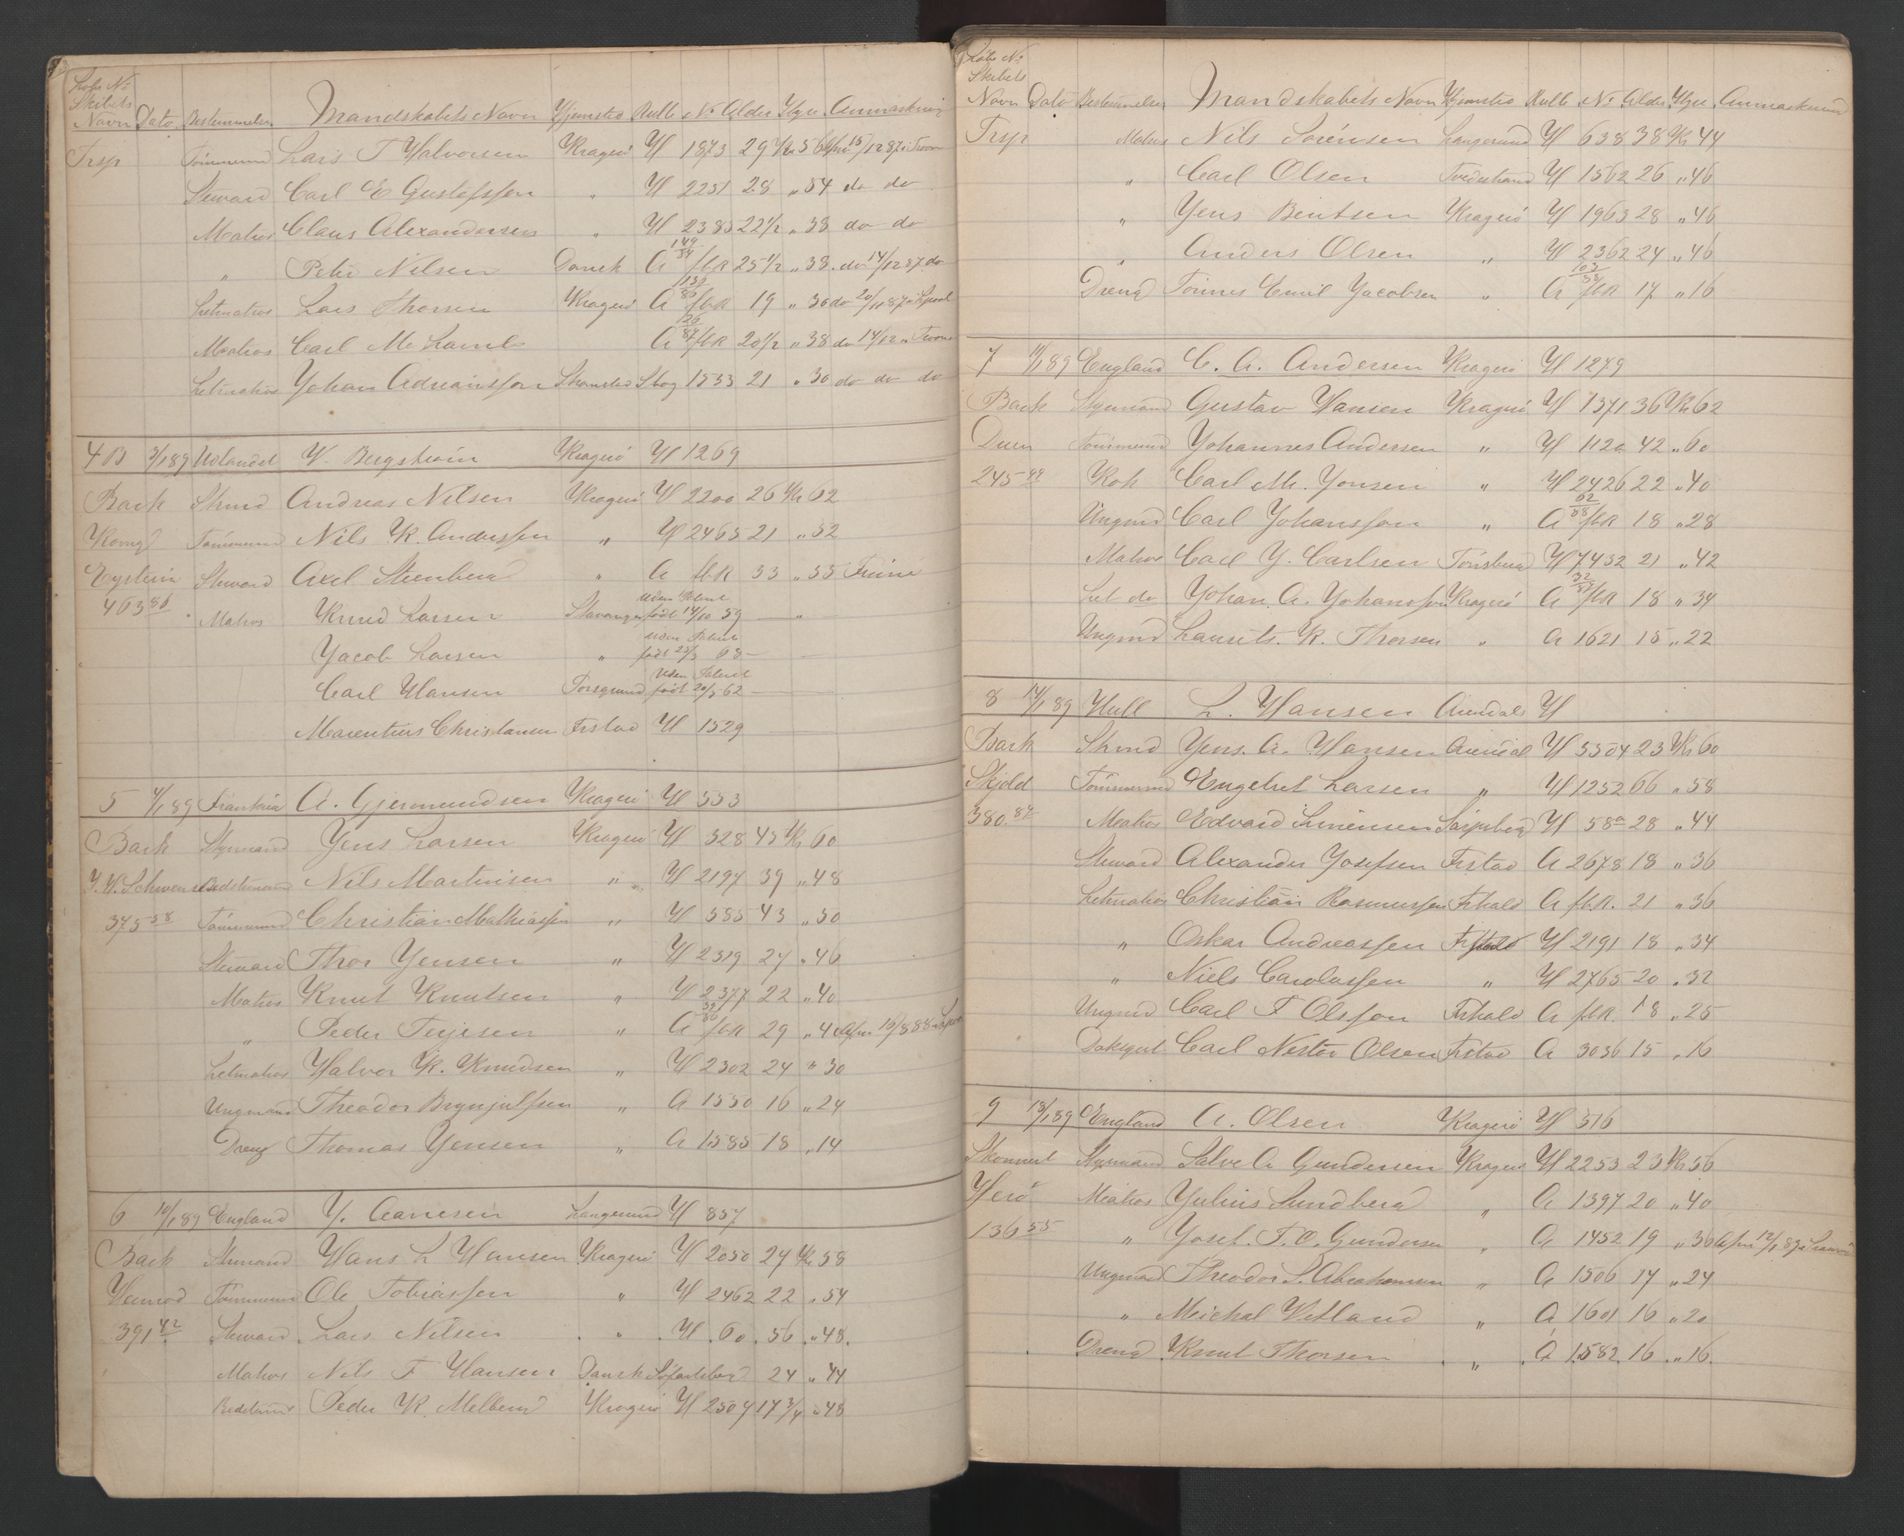 Løbe No
Skibets
Navn Dato Bestemmelse Mandskabets Navn Hjemsted Rulle No Alder Hyre Anmærkning
Trsp Tømmermd Lars T Halvorsen Kragerø H 1873 29 1/2 Kr 56
Steward Carl E Gustafssen " H 2251 28 " 54 do do
Matros Claus Alexandersen " H 2383 22 1/2 " 38 do do
" Peter Nilsen Dansk A 149/34 fbR 25 1/2 " 38 do 14/12 87 do
Letmatros Lars Thorsen Kragerø A fbR 19 " 30 do
Matros Carl M. A 126/87 fbR 20 1/2 " 38 do 14/12 "
Letmatros Johan Adriansson 1533 21 " 30 do do do
4 B 3/1 89 Udlandet W. Bergstrøm Kragerø H 1269
Bark Stmd Andreas Nilsen Kragerø H 2200 26 Kr 62
Kong Tømmermd Nils K. Andersen " H 2465 21 " 52
Eystein Steward Axel Steenberg " A fbR 33 " 55
463 86 Matros Knud Larsen Stavanger Uden Patent født 14/10 59 "
Jacob Larsen " Uden Patent født 23/3 68
Carl Hansen Porsgrund Uden Patent født 20/3 62
Marentius Christansen Frstad H 1529
5 4/1 89 Frankrig A. Gjermundsen Kragerø H 333
Bark Styrmand Jens Larsen Kragerø H 328 43 Kr 60
J. H. Schwensen Bedstemand Nils Martinsen " H 2197 39 " 48
375 58 Tømmermd Christian Mathiassen " H 585 43 " 50
Steward Thor Jensen " H 2319 27 " 46
Matros Knut Knutsen " H 2377 22 " 40
" Peder Terjesen " A fbR 29 " 40
Letmatros Halvor K. Knudsen " H 2302 24 " 30
Ungmand Theodor Brynjulfsen " A 1550 16 " 24
Dreng Thomas Jensen " A 1585 18 " 14
6 10/1 89 England J. Aanesen Langesund H 857
Bark Styrmand Hans L Hansen Kragerø H 2050 27 Kr 58
Vermod Tømmermd Ole Tobiassen " H 2462 22 " 54
391 42 Steward Lars Nilsen " H 60 56 " 48
Matros Nils F Hansen Dansk Søfartsbog 24 " 44
Bedstemd Peder K. Melberg Kragerø H 2507 17 3/4 " 48
Løbe No
Skibets
Navn Dato Bestemmelse Mandskabets Navn Hjemsted Rulle No Alder Hyre Anmærkning
Trsp Matros Nils Sørensen Langesund H 638 38 Kr 44
" Carl Olsen Tvedestrand H 1562 26 " 46
" Jens Bentsen Kragerø H 1963 28 " 46
" Anders Olsen " H 2362 24 " 46
Dreng Tønnes Emil Jacobsen " A 103/88 fbR 17 " 16
7 11/1 89 England C. A. Andersen Kragerø H 1279
Bark Styrmand Gustav Hansen Kragerø H 1371 36 Kr 62
Duen Tømmermd Johannes Andersen " H 1120 42 " 60
245 99 Kok Carl M. Jonsen " H 2426 22 " 40
Ungmd Carl Johansson " A 62/88 fbR 18 " 28
Matros Carl J. Carlsen Tønsberg H 7432 21 " 42
Let do Johan A. Johansson Kragerø A fbR 18 " 34
Ungmd Laurits K. Thorsen " A 1621 15 " 22
8 14/1 89 Hull L. Hansen Arendal H
Bark Stmd Jens A. Hansen Arendal H 5304 23 Kr 60
Skjold Tømmermd Engebret Larsen " H 1252 66 " 58
380 87 Matros Edvard Simensen Sarpsborg H 58a 28 " 44
Steward Alexander Josefsen Frstad A 2678 18 " 36
Letmatros Christian Rasmussen Frhald A fbR. 21 " 36
" Oskar Andreassen Frstad H 2191 18 " 34
" Niels Carolussen " H 2765 20 " 32
Ungmd Carl F Olsson Frhald A fbR. 18 " 25
Dæksgut Carl Nestor Olsen Frstad A 3036 15 " 16
9 18/1 89 England A. Olsen Kragerø H 516
Skonnert Styrmand Salve A Gundersen Kragerø H 2253 23 Kr 56
Jerø Matros Julius Lundberg " A 1397 20 " 40
136 55 " Josef. T. O. Gundersen " A 1452 19 " 36
Ungmand Theodor S. Abrahamsen " A 1506 17 " 24
" Meichal Vitland " A 1601 16 " 20
Dreng Knut Thorsen " A 1582 16 " 16